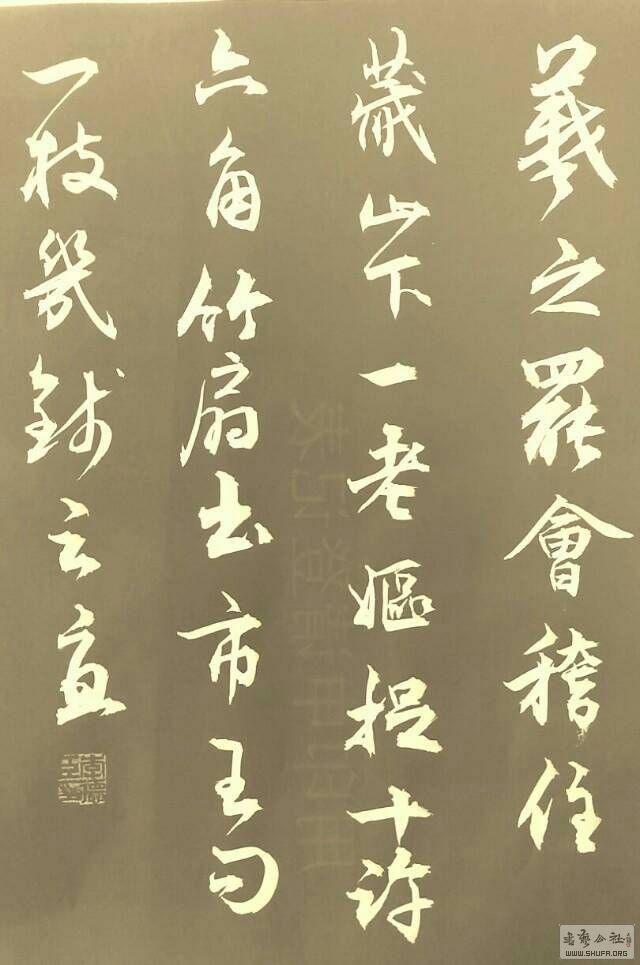 羲之罷會稽住
蕺山下一老嫗捉十許
六角竹扇出市王問
一枚幾錢云直
書藝公社
WWW.SHUFA.ORG